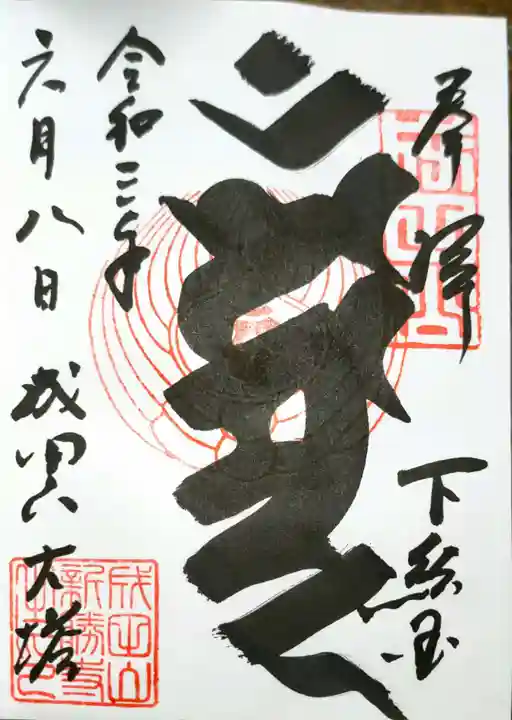 奉拝
下総国
令和三年
六月八日 成田山 大塔
成田山
新勝寺